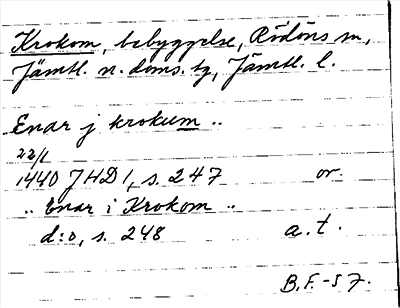 Krokom, bebyggelse, Rödöns sn,
Jämtl. n. doms. tg, Jämtl. l.
Enar j krokum ..
22/1
1440 JHD 1, s. 247 or.
.. Enar i Krokom ..
d:o, s. 248 a. t.
B.F.-57.